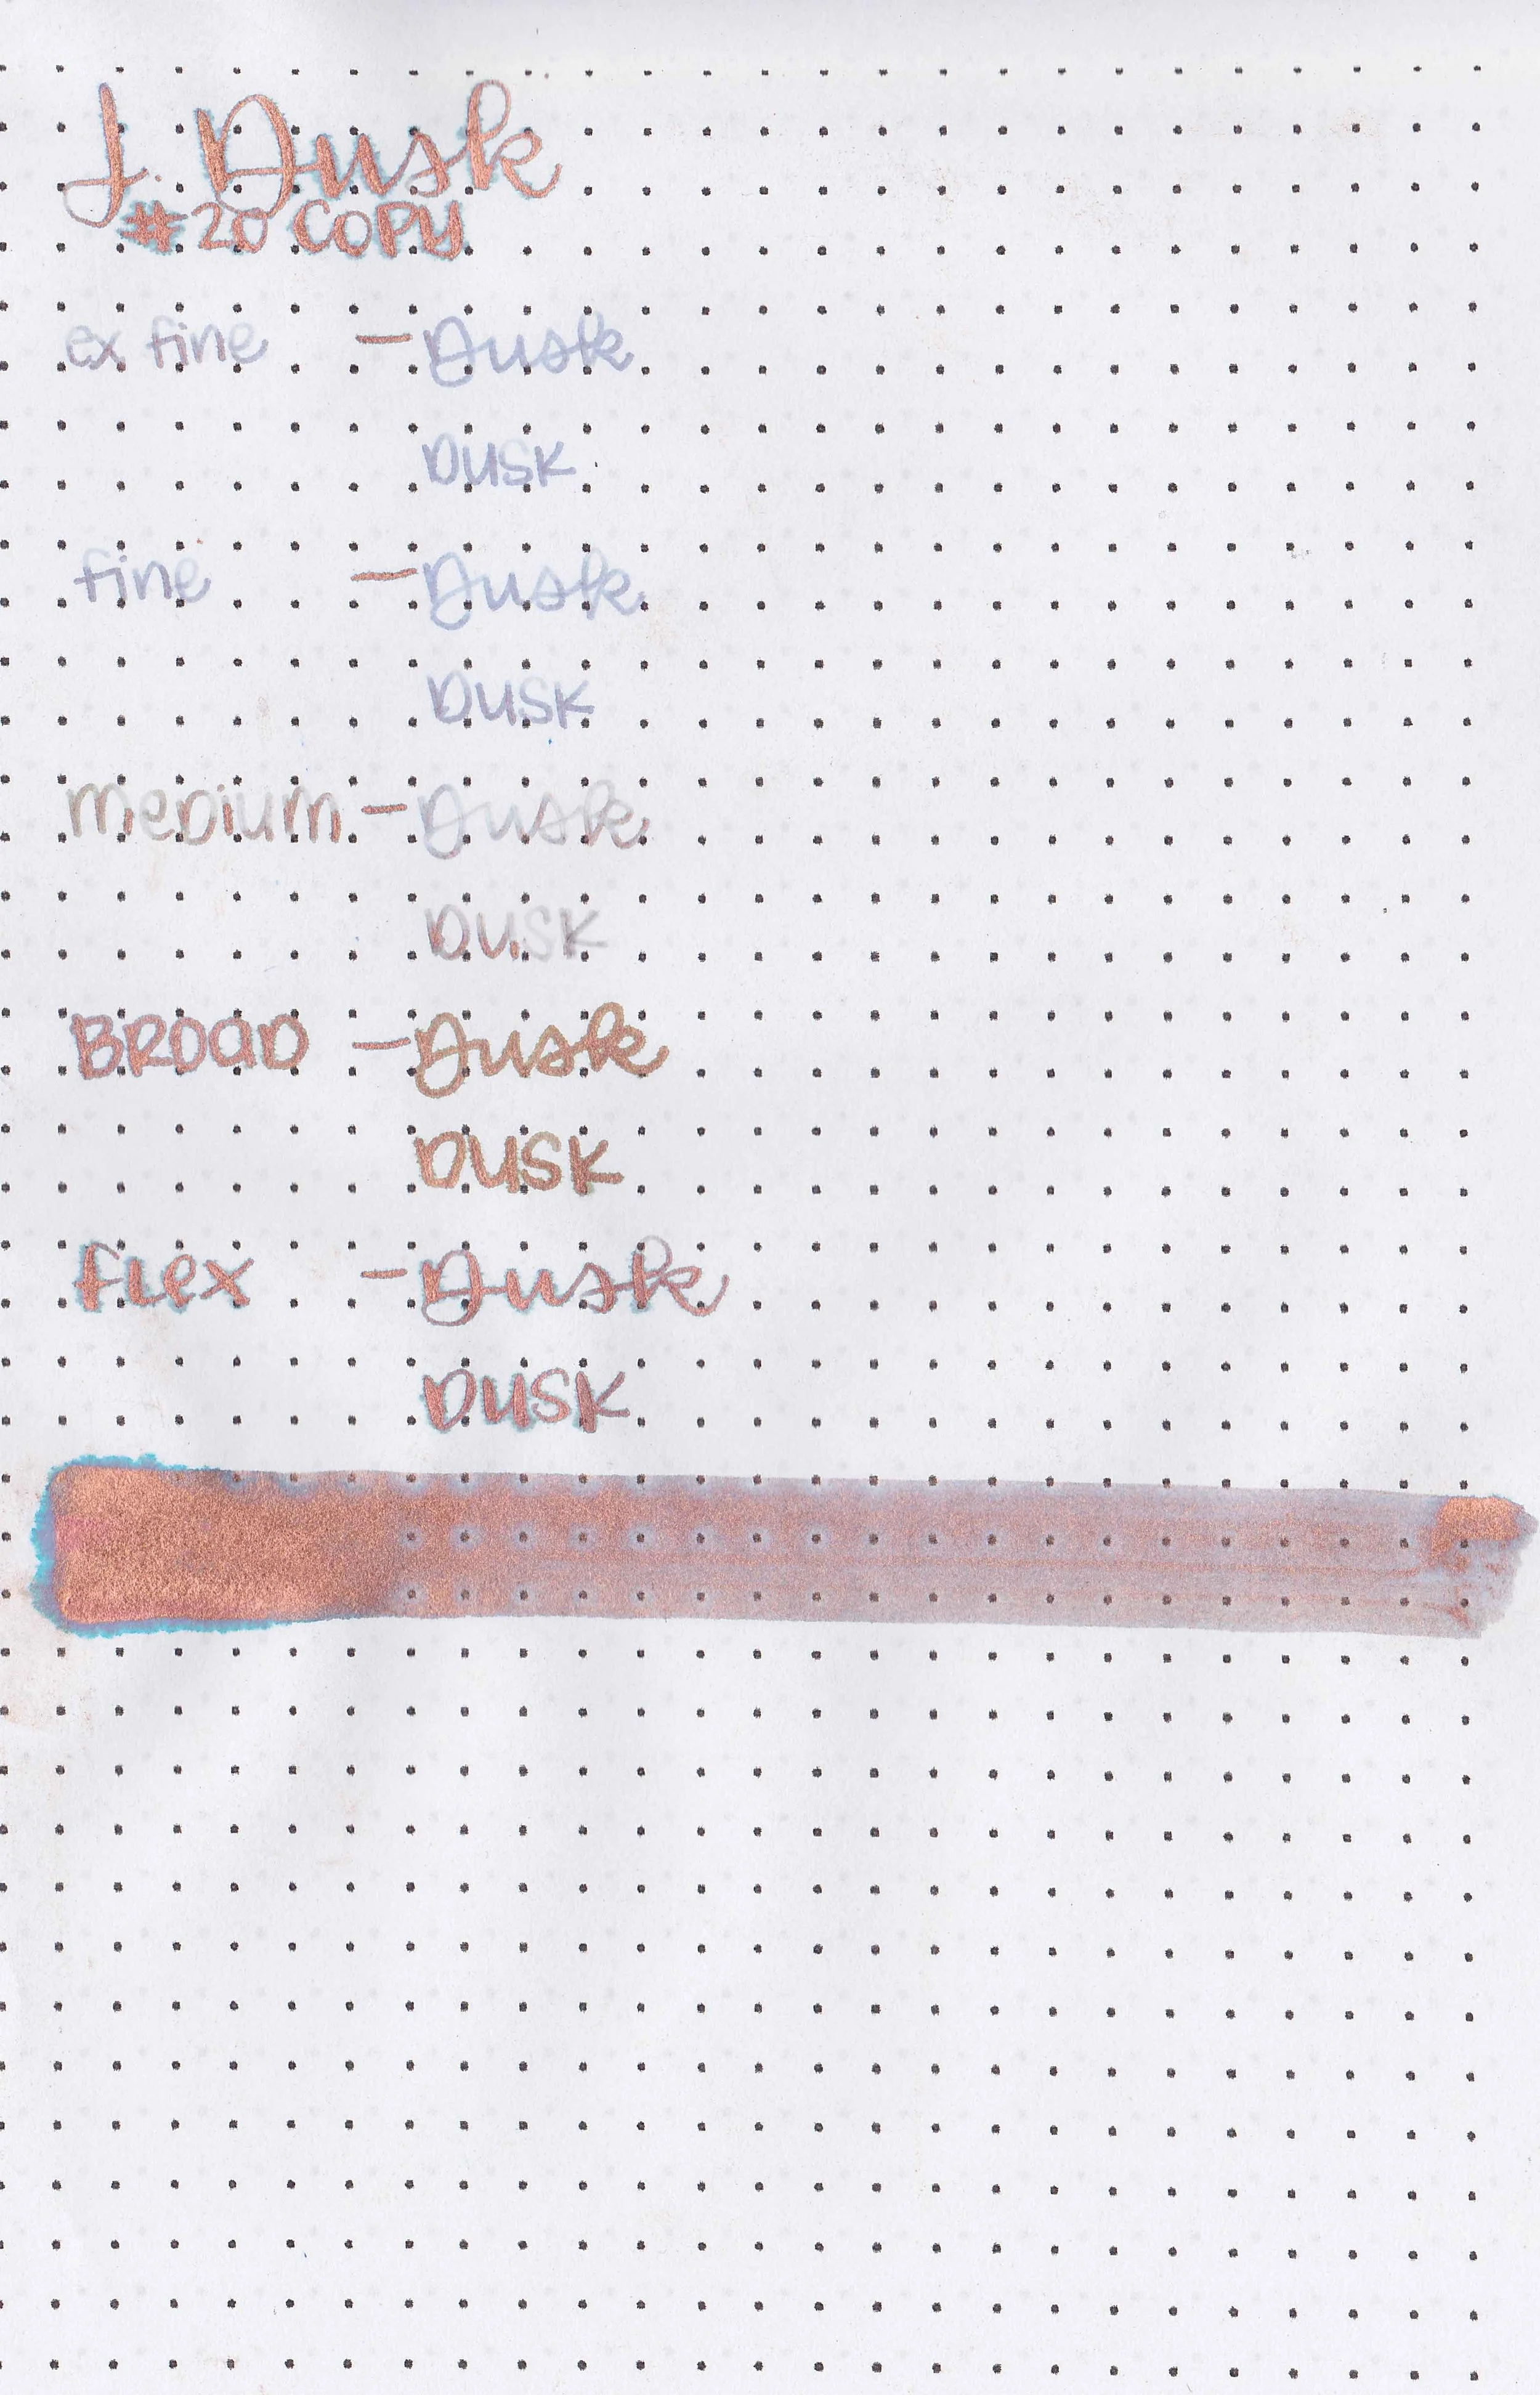 J. Dusk
#20 COPY
ex fine - Dusk
DUSK
fine - Dusk
DUSK
meDium - Dusk
DUSK
BROAD - Dusk
DUSK
FLex - Dusk
DUSK